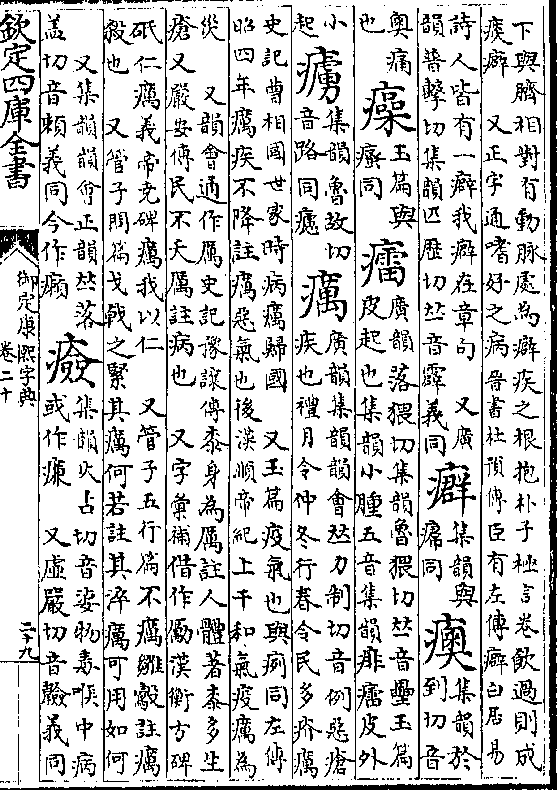 下與臍相對有動脉處為癖疾之根抱朴子極言卷飲過則成
痰癖　又正字通嗜好之病晉書杜預傳臣有左傳癖白居易
詩人皆有一癖我癖在章句　又廣
韻普擊切集韻匹歷切𠀤音霹義同
癖
集韻與
㿎同
㿋
集韻於
到切音
奧痛
也
㿋
玉篇與
瘙同
癗
廣韻落猥切集韻魯猥切𠀤音壘玉篇
皮起也集韻小腫五音集韻痱癗皮外
小
起
㿖
集韻魯故切
音路同㿖
癘
廣韻集韻韻會𠀤力制切音例惡瘡
疾也禮月令仲冬行春令民多疥癘
史記曹相國世家時病癘歸國　又玉篇疫氣也與㾐同左傳
昭四年癘疾不降註癘惡氣也後漢順帝紀上干和氣疫癘為
災　又韻會通作厲史記豫讓傳漆身為厲註人體著漆多生
瘡又嚴安傳民不夭厲註病也　又字彙補借作勵漢衡方碑
砥仁癘義帝堯碑癘我以仁　又管子五行篇不癘雛鷇註癘
殺也　又管子問篇戈戟之緊其癘何若註其淬癘可用如何
又集韻韻會正韻𠀤落
盖切音賴義同今作癩
㿌
集韻火占切音姿物毒喉中病
或作㾾　又虛嚴切音㿌義同
欽定四庫全書
御定康熙字典
卷二十
二十九